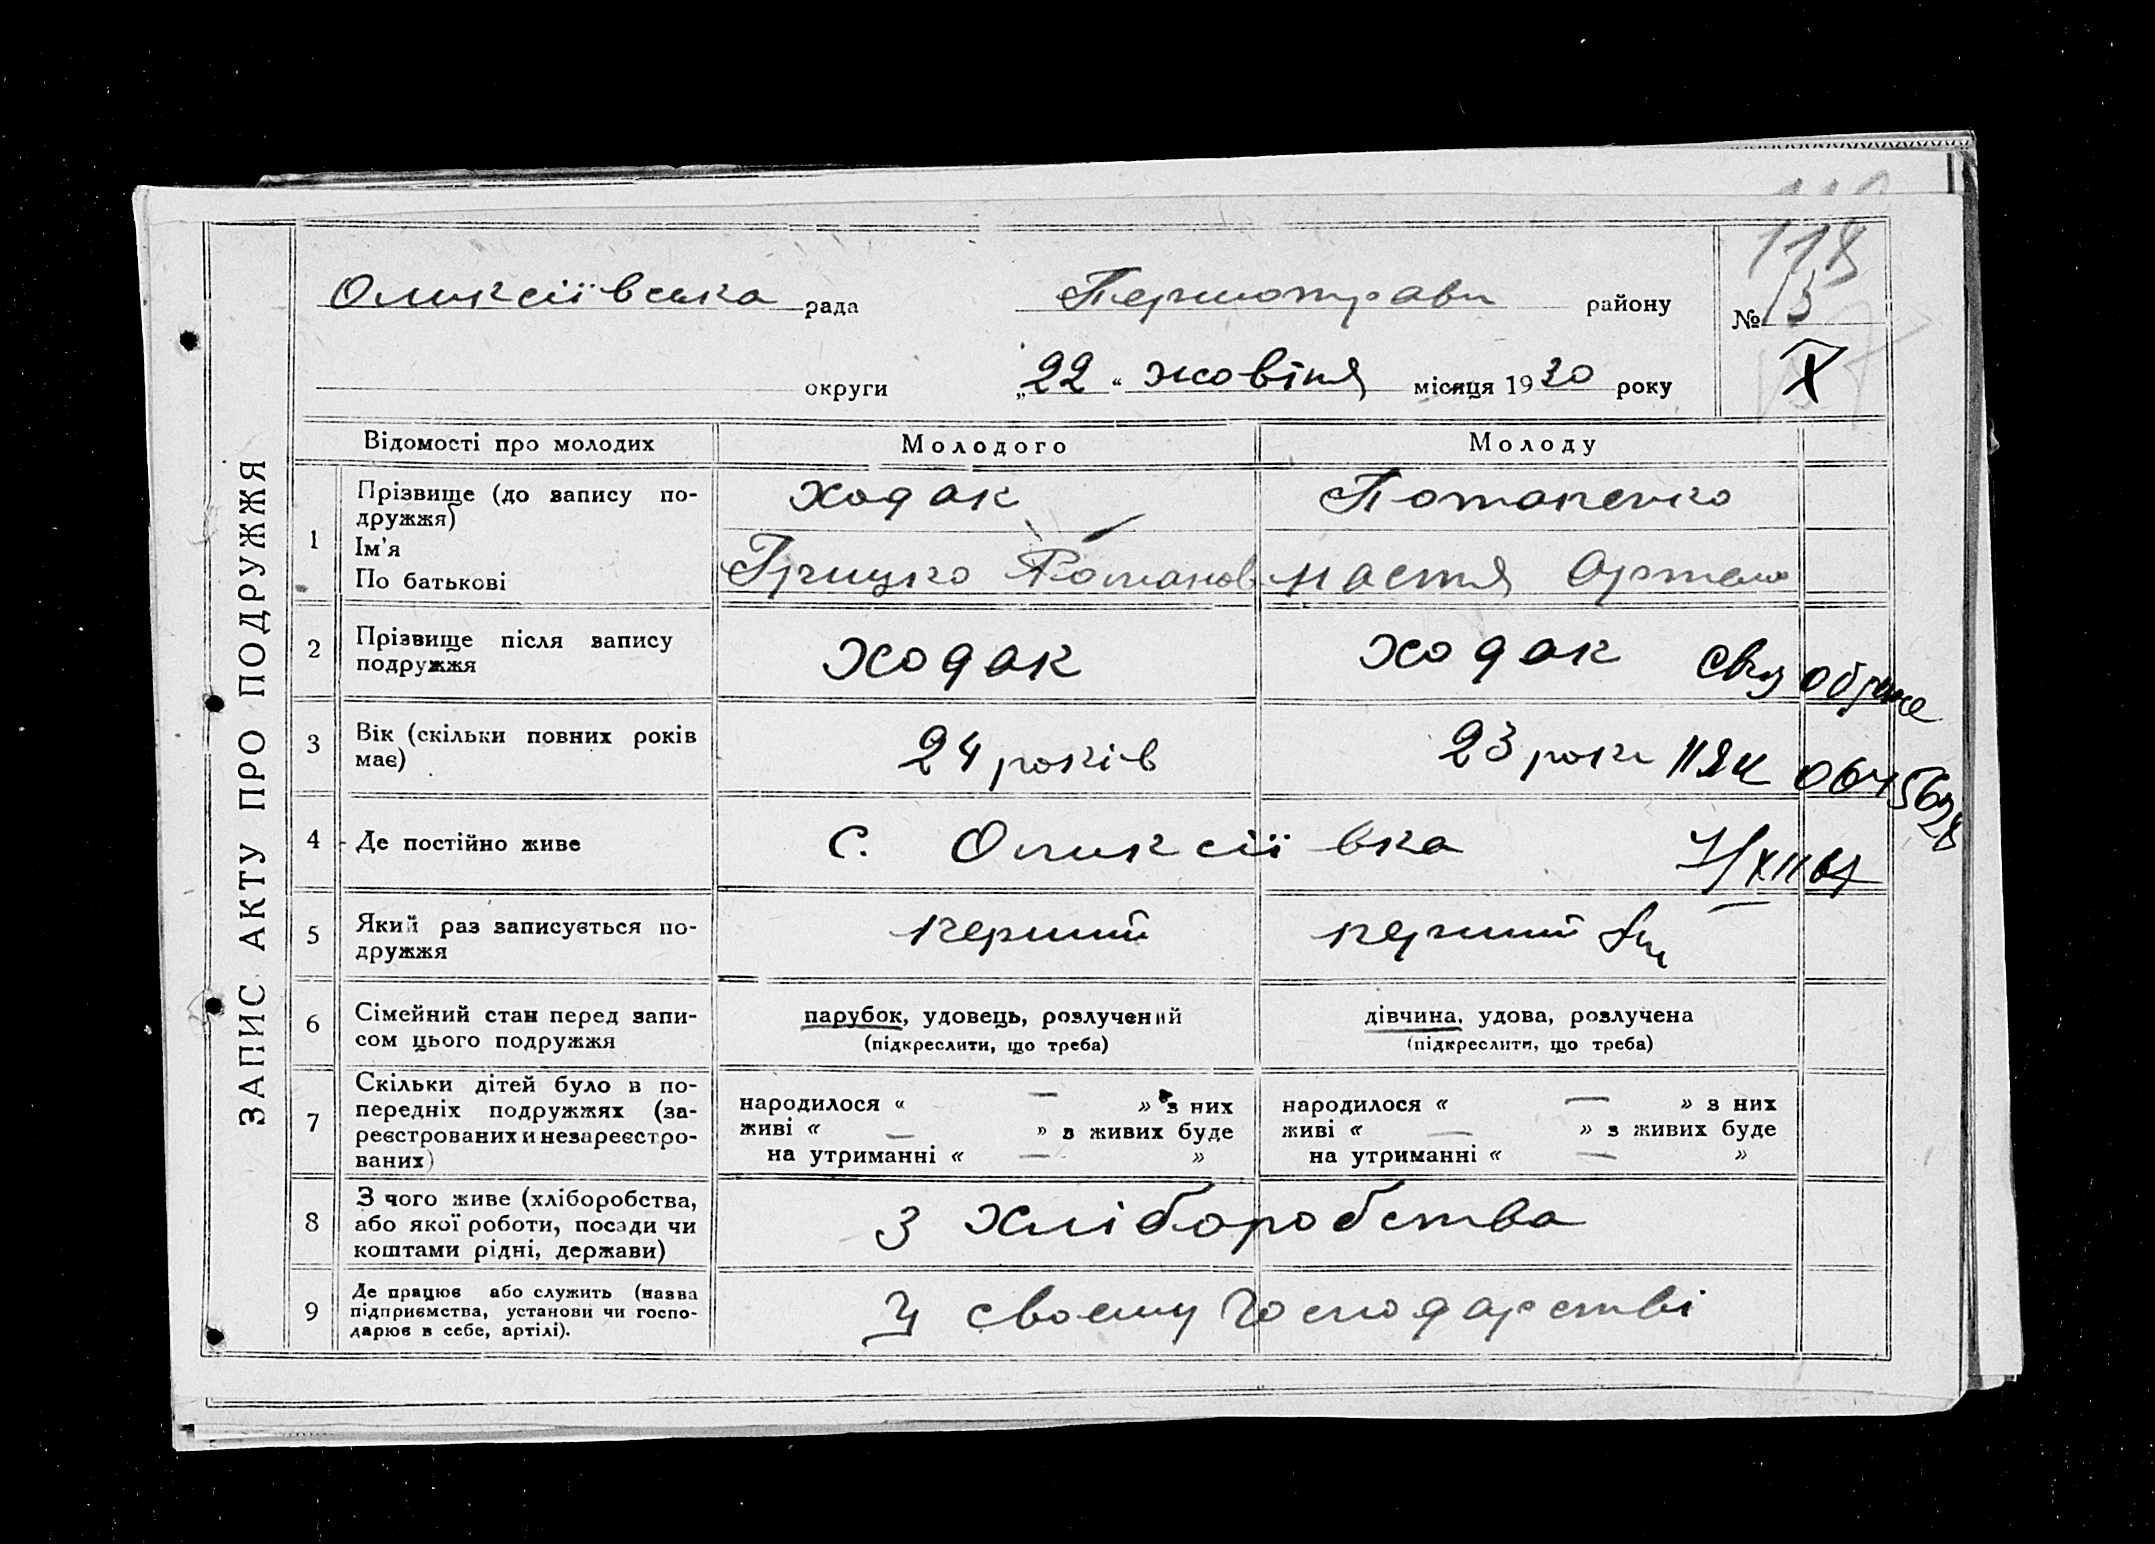 118
Оликсіївська рада Першотравн району №15
округи „22“ жовтня місяця 1930 року X
ЗАПИС АКТУ ПРО ПОДРУЖЖЯ
Відомості про молодих Молодого Молоду
1 Прізвище (до запису по-
дружжя) Ходак Потапенко
Ім’я
По батькові Грицько Романов Настя Артемо
2 Прізвище після запису
подружжя Ходак Ходак
3 Вік (скільки повних років
має) 24 років 23 роки
4 Де постійно живе с. Оликсіївка
5 Який раз записується по-
дружжя перший перший
6 Сімейний стан перед запи-
сом цього подружжя
парубок, удовець, розлучений
(підкреслити, що треба)
дівчина, удова, розлучена
(підкреслити, що треба)
7 Скільки дітей було в по-
передніх подружжях (за-
реєстрованих и незареєстро-
ваних)
народилося « — » з них
живі « — » з живих буде
на утриманні « — »
народилося « — » з них
живі « — » з живих буде
на утриманні « — »
8 З чого живе (хліборобства,
або якої роботи, посади чи
коштами рідні, держави)
З хліборобства
9 Де працює або служить (назва
підприємства, установи чи госпо-
дарює в себе, артілі).
У своєму господарстві